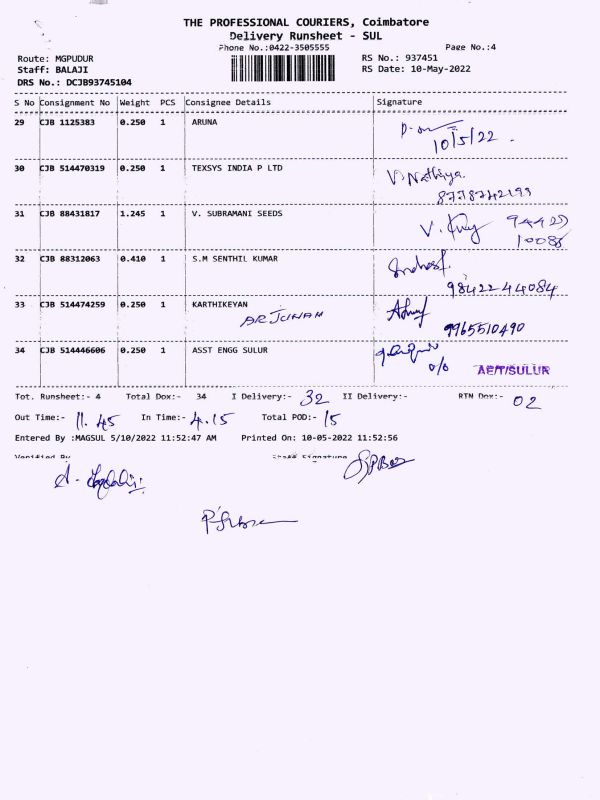 THE PROFESSIONAL COURIERS, Coimbatore
Delivery Runsheet - SUL
Phone No.:0422-3505555 Page No.:4
Route: MGPUDUR RS No.: 937451
Staff: BALAJI RS Date: 10-May-2022
DRS No.: DCJB93745104
S No Consignment No Weight PCS Consignee Details Signature
29 CJB 1125383 0.250 1 ARUNA
10/5/22.
30 CJB 514470319 0.250 1 TEXSYS INDIA P LTD V. Nathiya
8778742193
31 CJB 88431817 1.245 1 V. SUBRAMANI SEEDS V.
32 CJB 88312063 0.410 1 S.M SENTHIL KUMAR
9842244084
33 CJB 514474259 0.250 1 KARTHIKEYAN
ARJUNAN 9965510490
34 CJB 514446606 0.250 1 ASST ENGG SULUR
AE/T/SULUR
Tot. Runsheet:- 4 Total Dox:- 34 I Delivery:- 32 II Delivery:- RTN Dox:- 02
Out Time:- 11.45 In Time:- 4.15 Total POD:- 15
Entered By :MAGSUL 5/10/2022 11:52:47 AM Printed On: 10-05-2022 11:52:56
Verified By Staff Signature